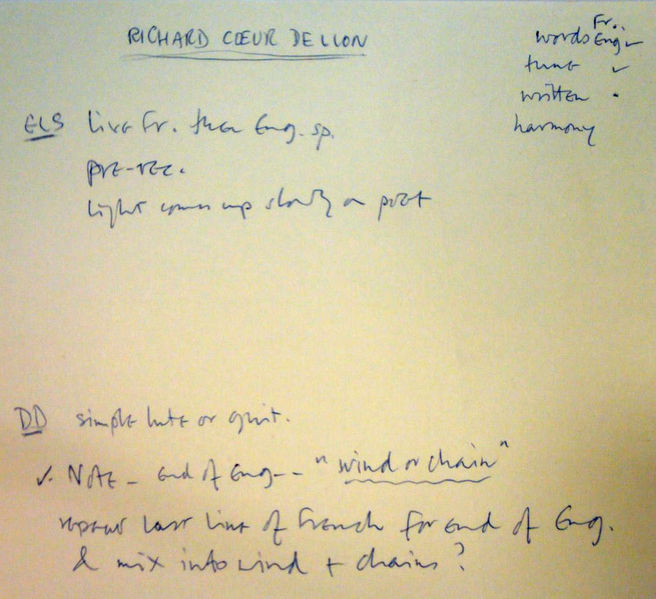 RICHARD CŒUR DE LION
Fr.
words Eng ✓
tune ✓
written •
harmony
ELS live Fr. then Eng. sp.
pre-rec.
light comes up slowly on poet
DD simple lute or guit.
✓. Note – end of Eng – "wind or chain"
repeat last line of French for end of Eng.
& mix into wind + chains?